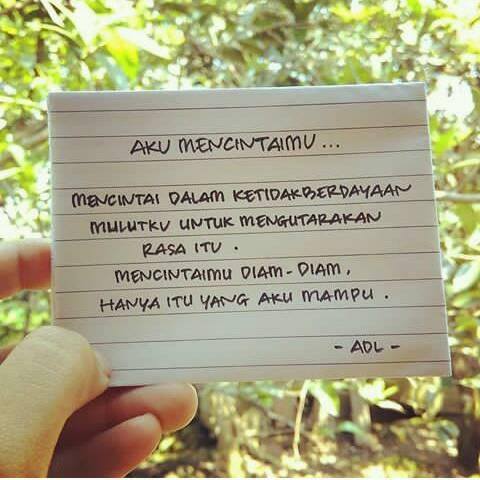 AKU MENCINTAIMU ...
MENCINTAI DALAM KETIDAKBERDAYAAN
MULUTKU UNTUK MENGUTARAKAN
RASA ITU .
MENCINTAIMU DIAM - DIAM ,
HANYA ITU YANG AKU MAMPU .
- ADL -